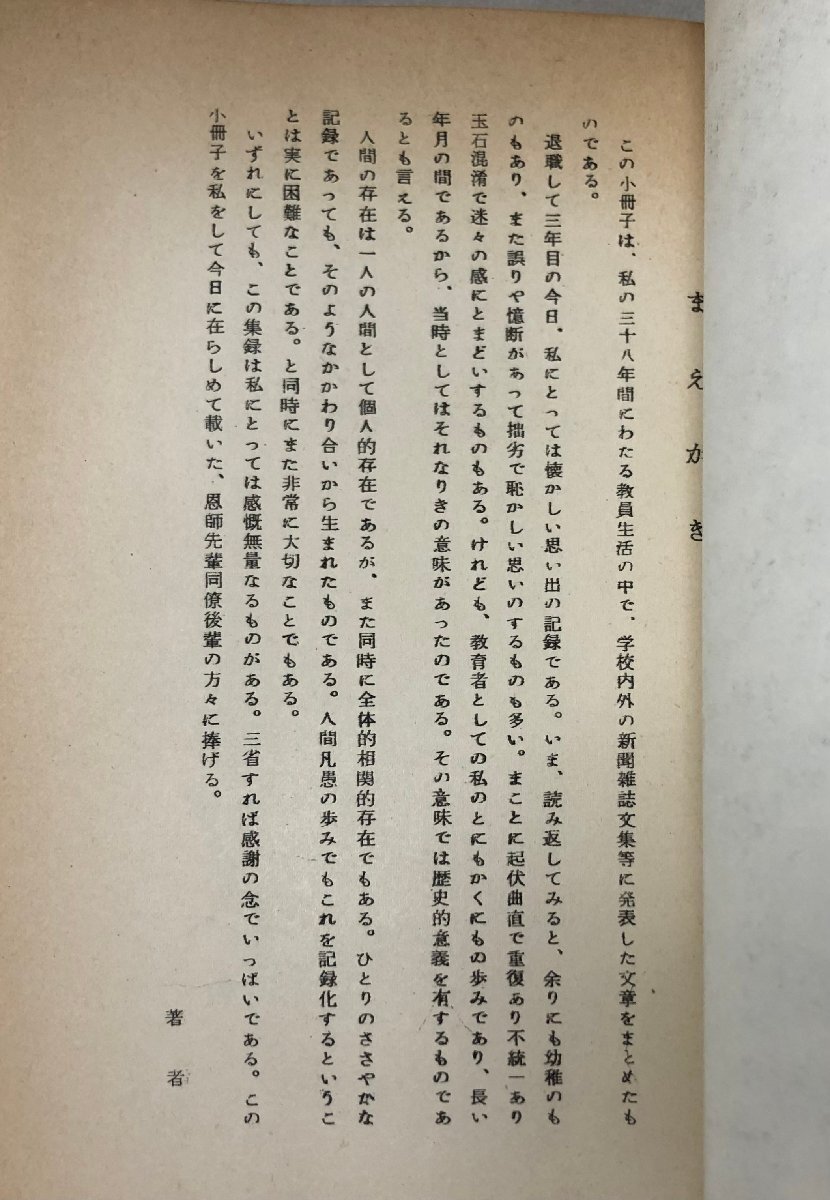 まえがき
この小冊子は、私の三十八年間にわたる教員生活の中で、学校内外の新聞雑誌文集等に発表した文章をまとめたも
のである。
退職して三年目の今日、私にとっては懐かしい思い出の記録である。いま、読み返してみると、余りにも幼稚のも
のもあり、また誤りや憶断があって拙劣で恥かしい思いのするものも多い。まことに起伏曲直で重復あり不統一あり
玉石混淆で迷々の感にとまどいするものもある。けれども、教育者としての私のとにもかくにもの歩みであり、長い
年月の間であるから、当時としてはそれなりきの意味があったのである。その意味では歴史的意義を有するものであ
るとも言える。
人間の存在は一人の人間として個人的存在であるが、また同時に全体的相関的存在でもある。ひとりのささやかな
記録であっても、そのようなかかわり合いから生まれたものである。人間凡愚の歩みでもこれを記録化するというこ
とは実に困難なことである。と同時にまた非常に大切なことでもある。
いずれにしても、この集録は私にとっては感慨無量なるものがある。三省すれば感謝の念でいっぱいである。この
小冊子を私をして今日に在らしめて載いた、恩師先輩同僚後輩の方々に捧げる。
著者